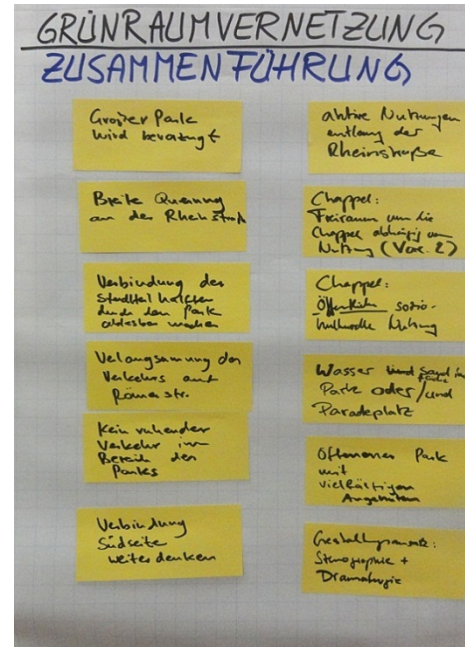 GRÜNRAUMVERNETZUNG
ZUSAMMENFÜHRUNG
Großer Park
wird bevorzugt
Breite Querung
an der Rheinstraße
Verbindung der
Stadtteilhälften
durch den Park
ablesbar machen
Verlangsamung des
Verkehrs auf
Römerstr.
Kein ruhender
Verkehr im
Bereich des
Parks
Verbindung
Südseite
weiterdenken
aktive Nutzungen
entlang der
Rheinstraße
Chappel:
Freiraum um die
Chappel abhängig von
Nutzung (Var. 2)
Chappel:
Öffentliche sozio-
kulturelle Nutzung
Wasser und Sand im
Park oder/und
Paradeplatz
Offener Park
mit
vielfältigen
Angeboten
Gestaltungsansatz:
Szenographie +
Dramaturgie